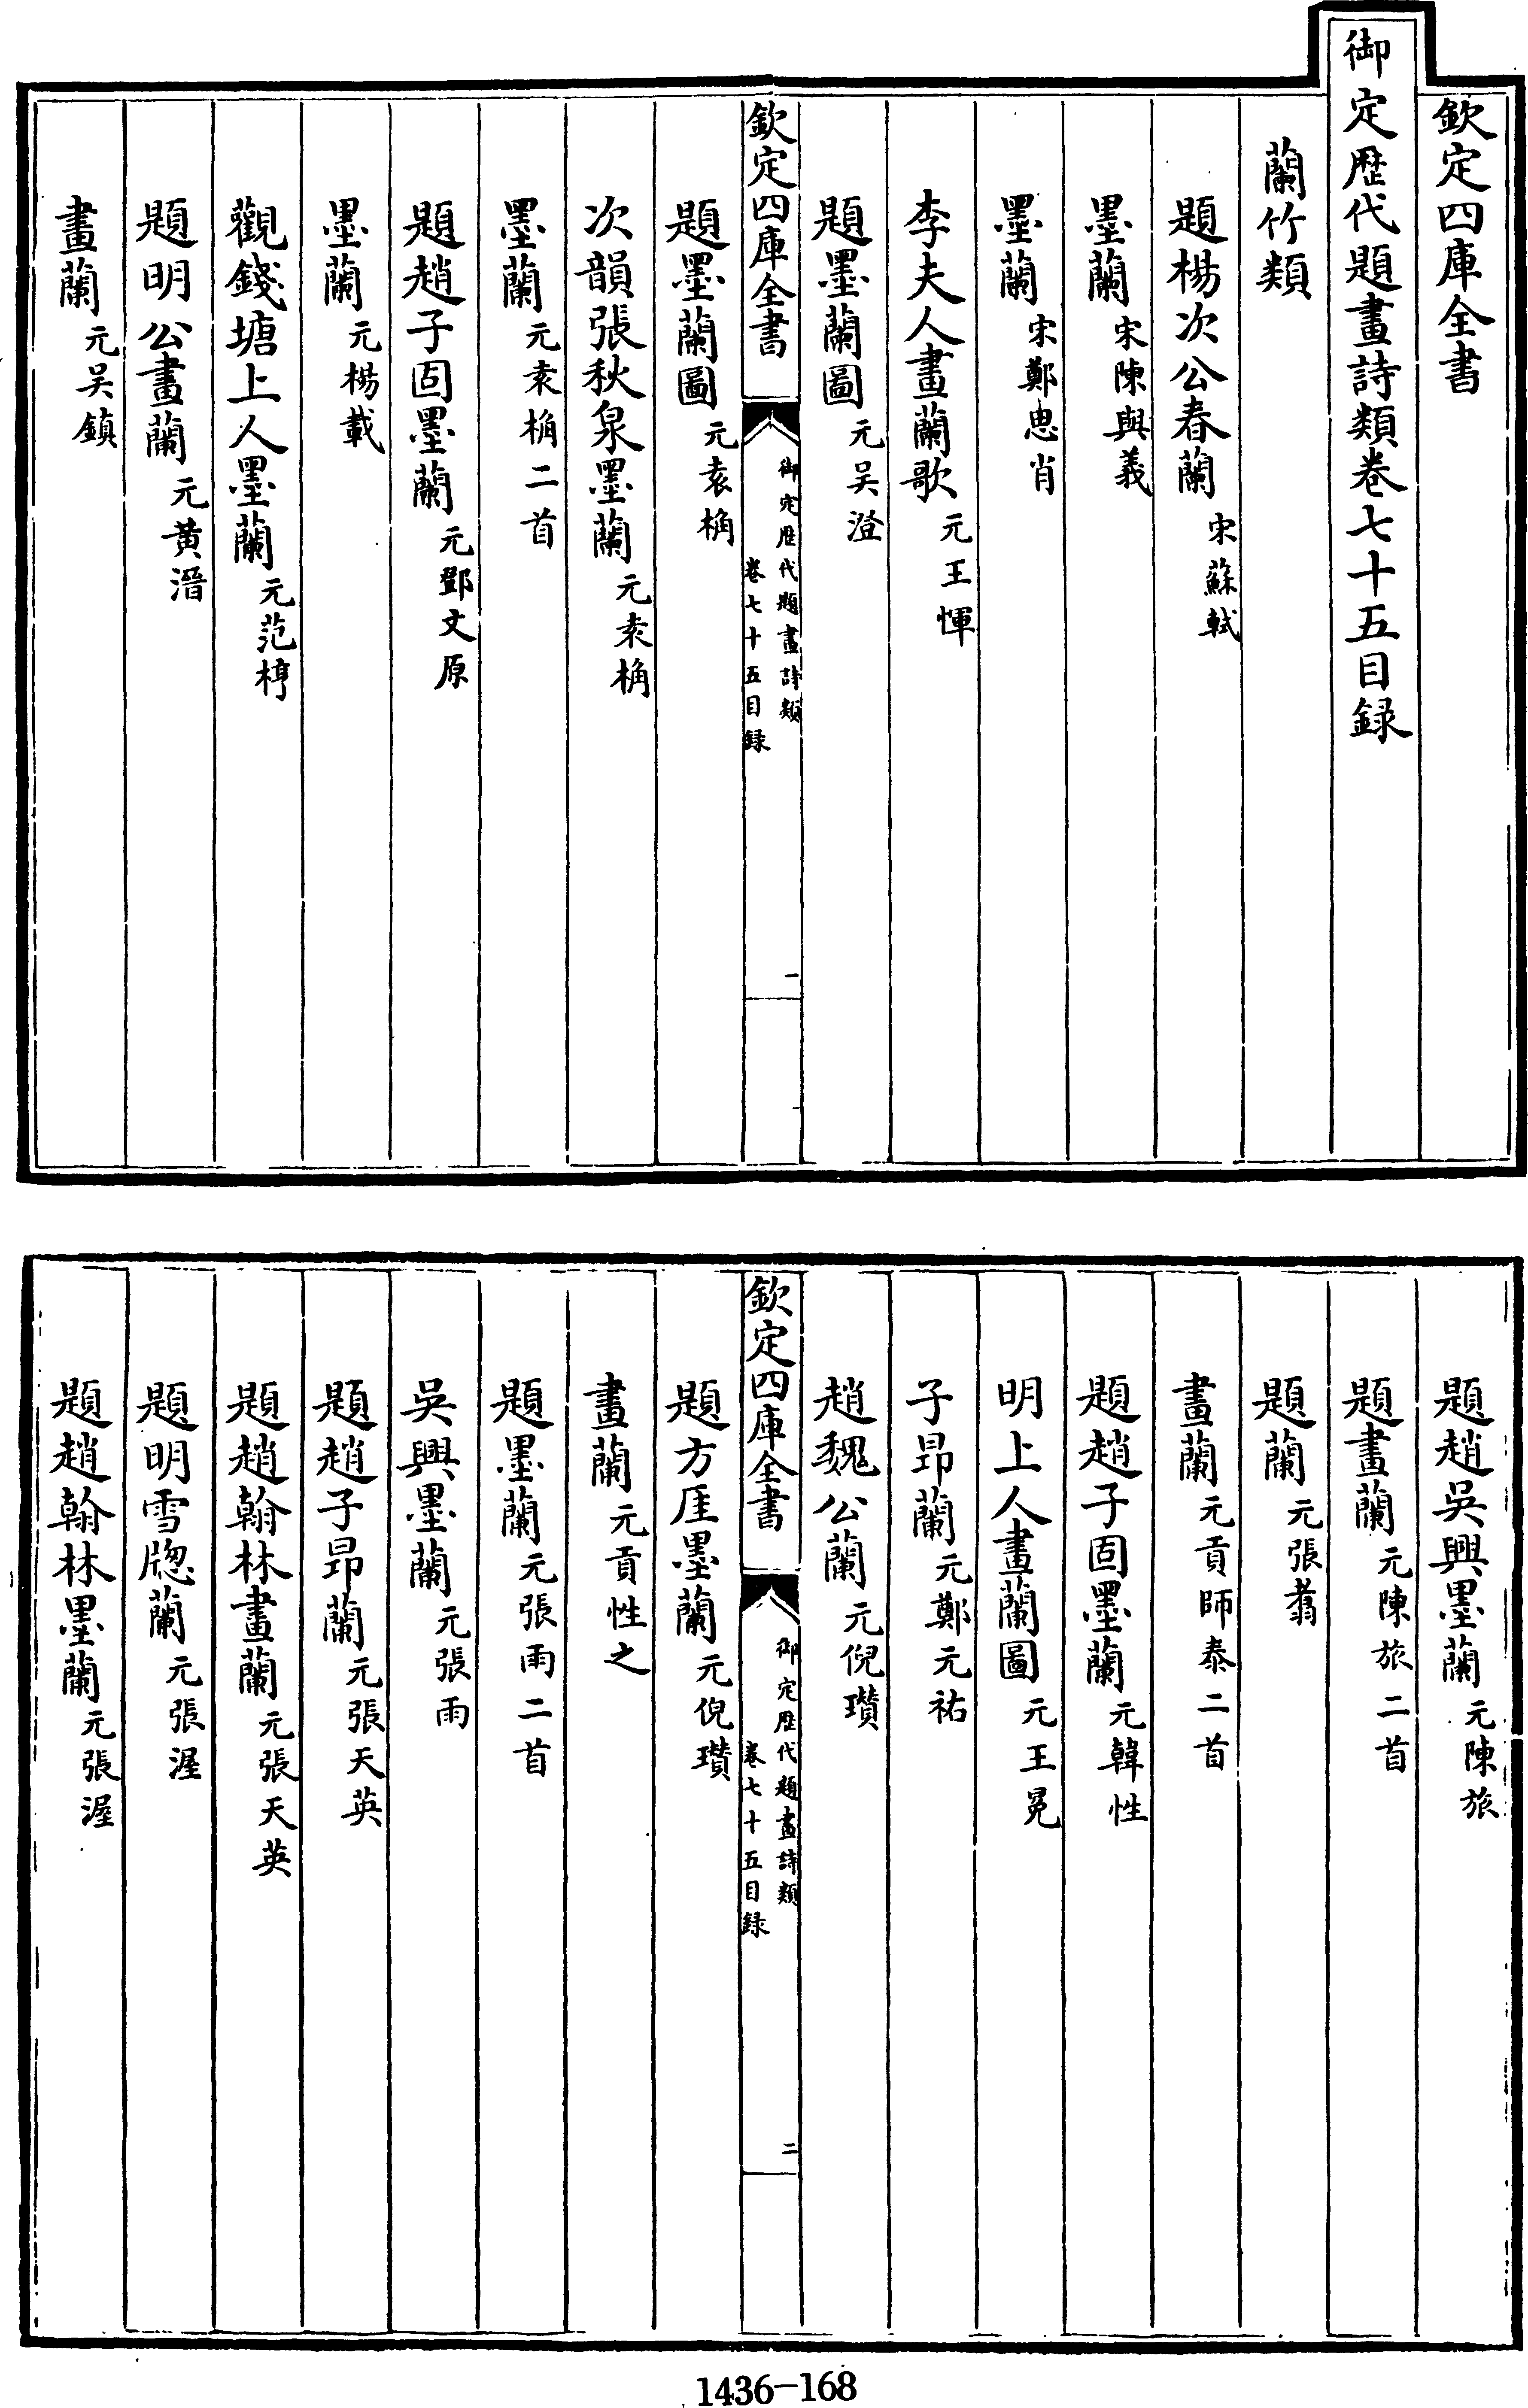 欽定四庫全書
御定歴代題畫詩類卷七十五目録
蘭竹類
題楊次公春蘭 宋蘇軾
墨蘭 宋陳與義
墨蘭 宋鄭思肖
李夫人畫蘭歌 元王惲
題墨蘭圖 元吴澄
欽定四庫全書
御定歴代題畫詩類
卷七十五目録
一
題墨蘭圖 元袁桷
次韻張秋泉墨蘭 元袁桷
墨蘭 元袁桷二首
題趙子固墨蘭 元鄧文原
墨蘭 元楊載
觀錢塘上人墨蘭 元范梈
題明公畫蘭 元黄溍
畫蘭 元吴鎮
題趙吳興墨蘭 元陳旅
題畫蘭 元陳旅二首
題蘭 元張翥
畫蘭 元貢師泰二首
題趙子固墨蘭 元韓性
明上人畫蘭圖 元王冕
子昂蘭 元鄭元祐
趙魏公蘭 元倪瓚
欽定四庫全書
御定歴代題畫詩類
卷七十五目録
二
題方厓墨蘭 元倪瓚
畫蘭 元貢性之
題墨蘭 元張雨二首
吳興墨蘭 元張雨
題趙子昂蘭 元張天英
題趙翰林畫蘭 元張天英
題明雪牕蘭 元張渥
題趙翰林墨蘭 元張渥
1436-168